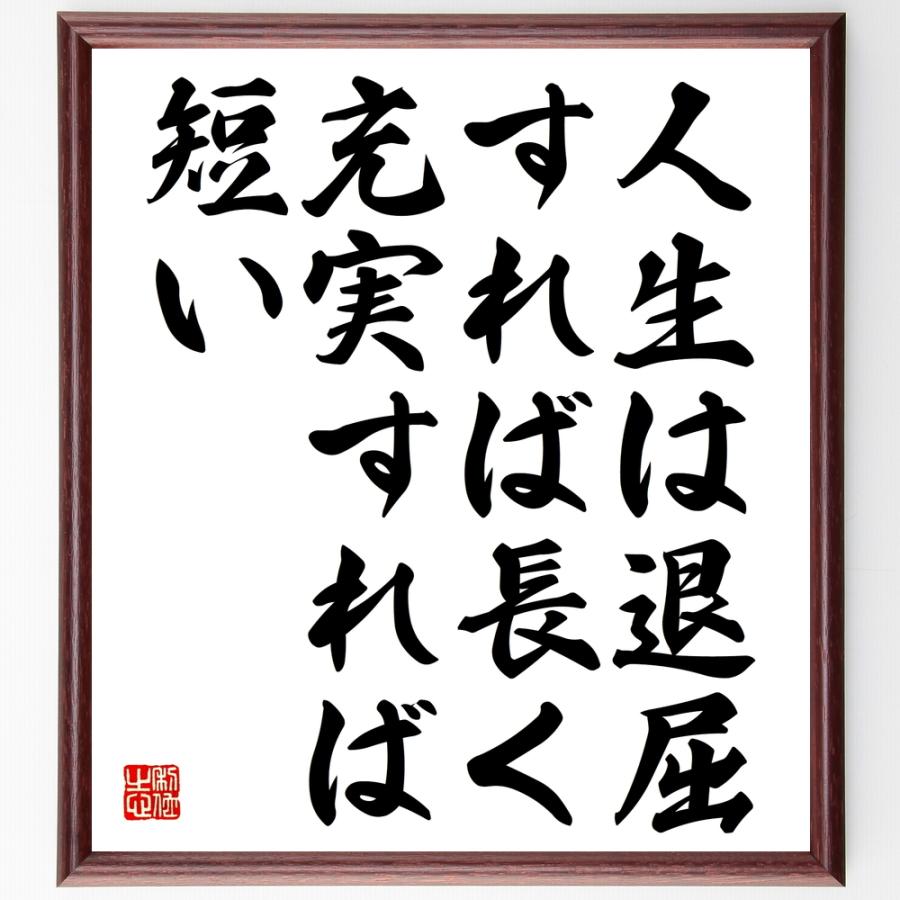 人生は退屈
すれば長く
充実すれば
短い